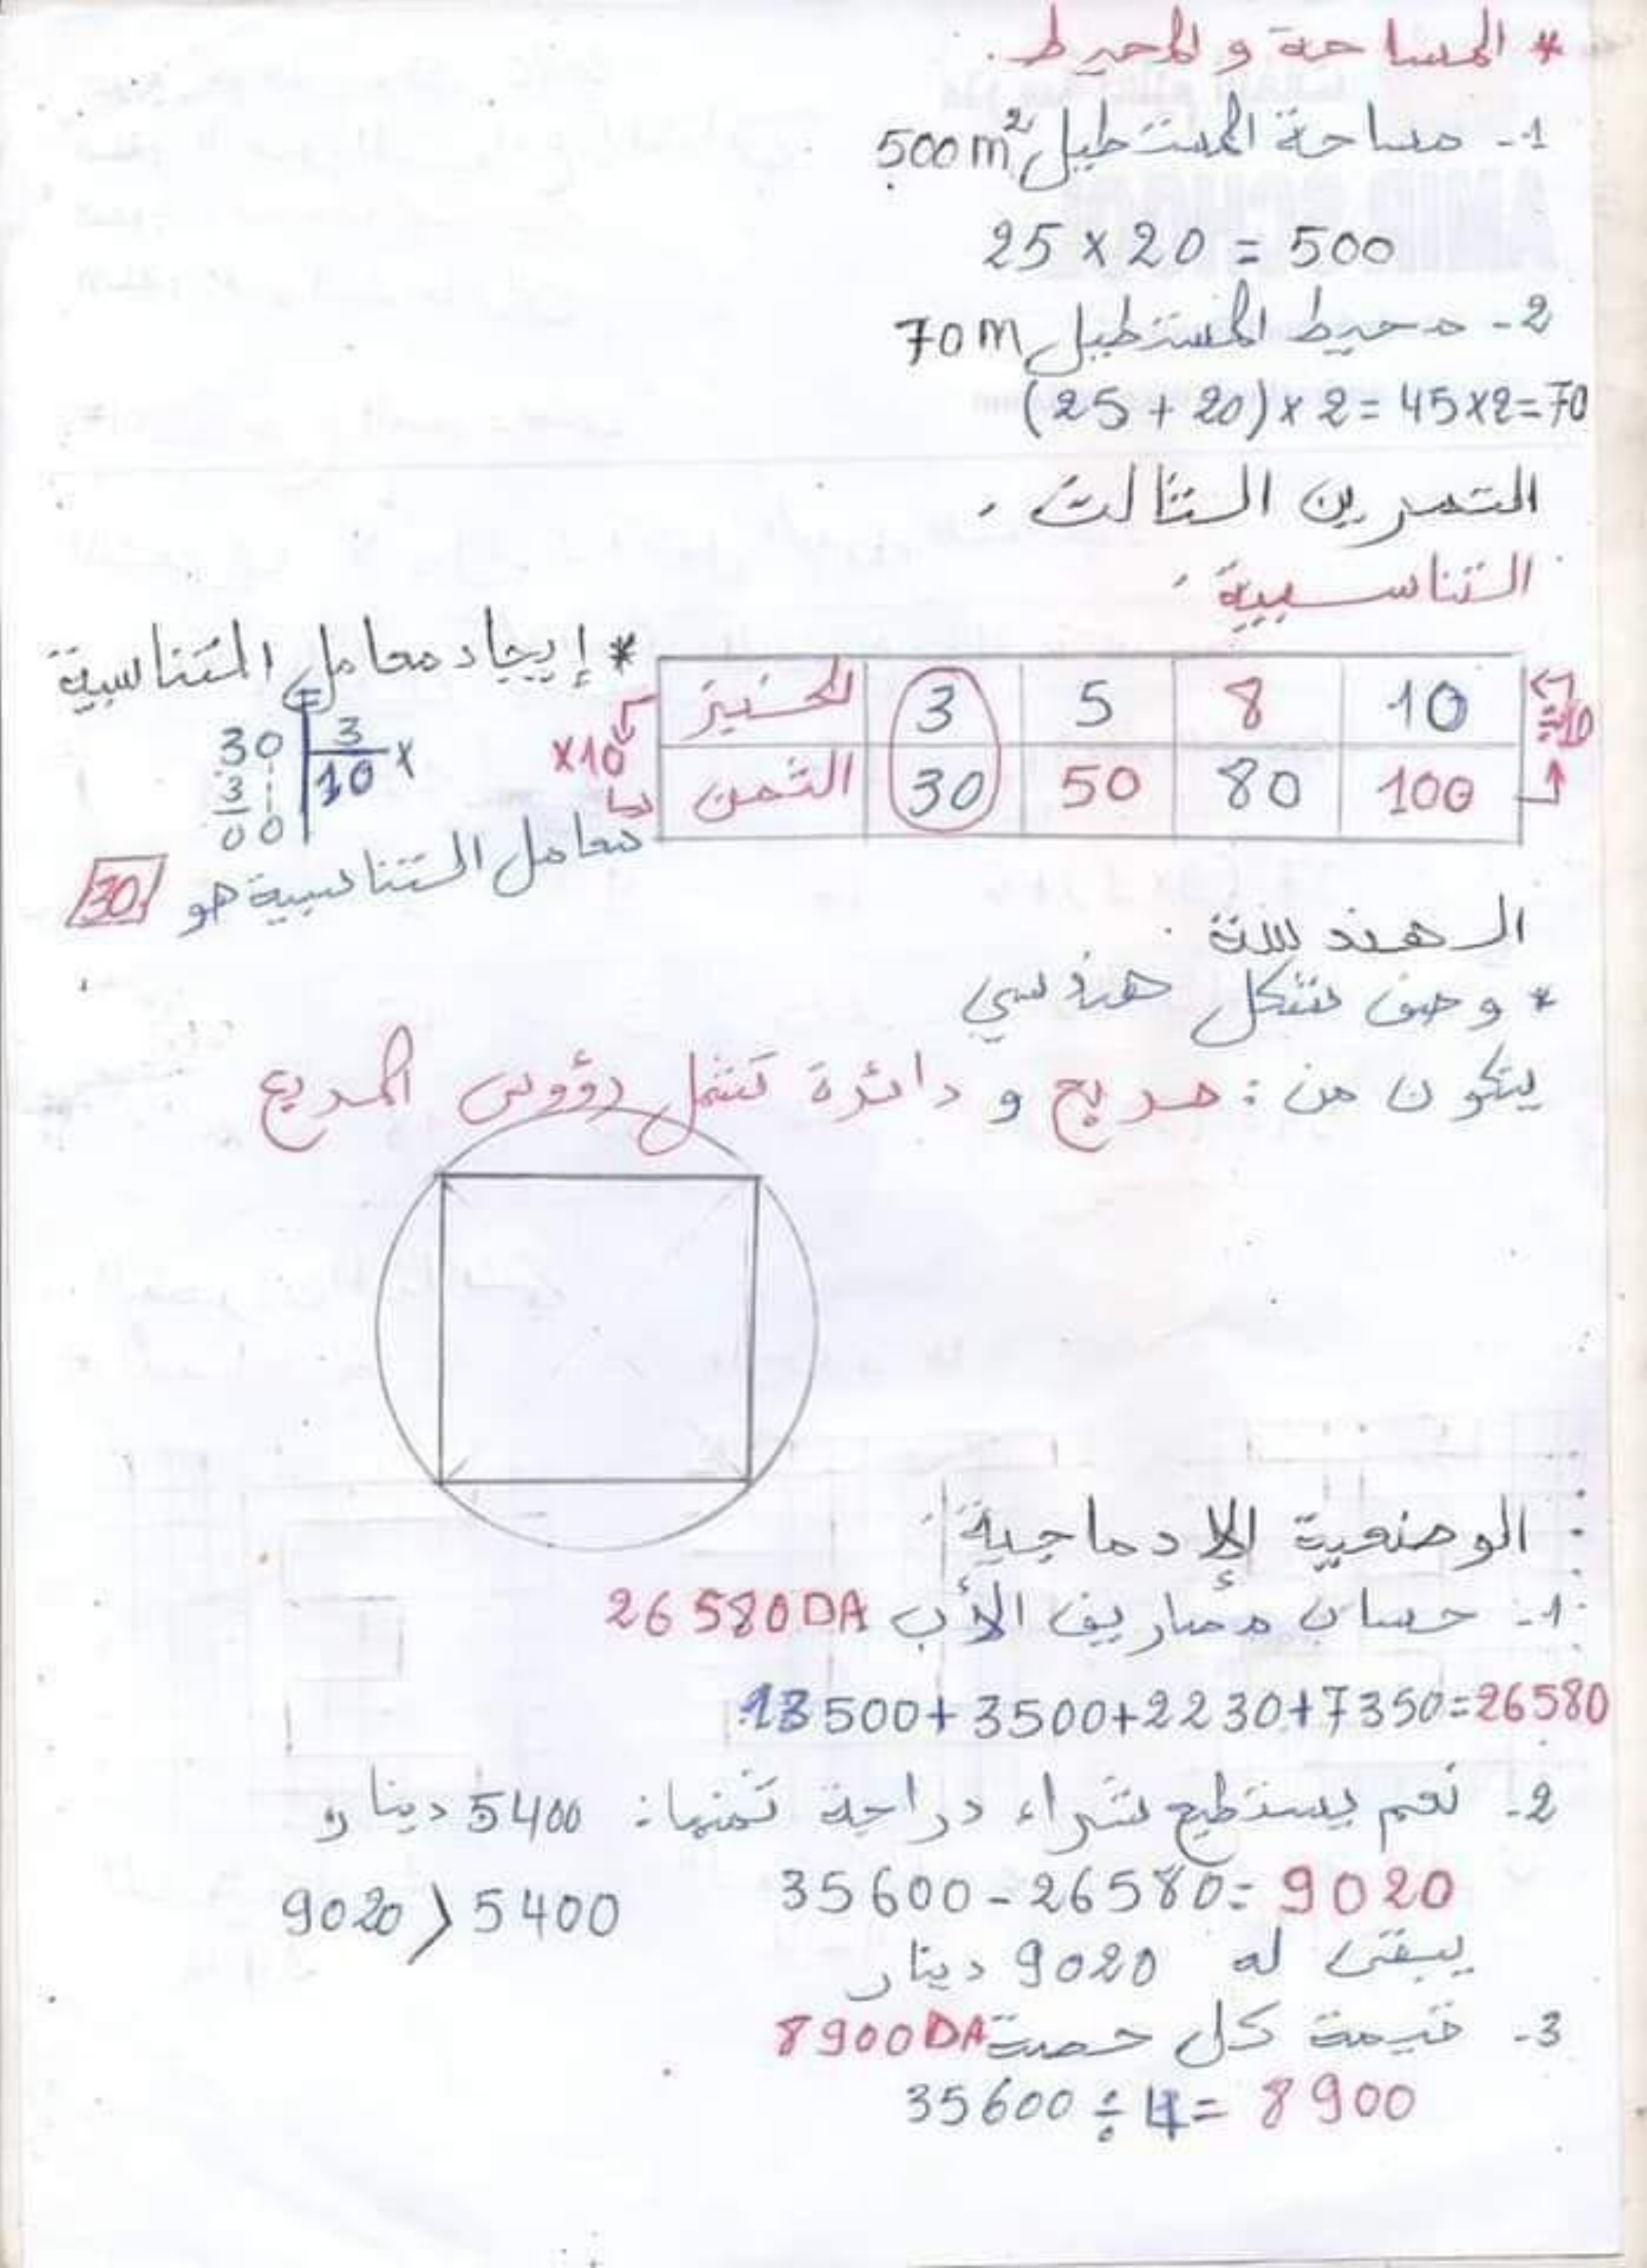 * المساحة و المحيط.
1- مساحة المستطيل 500m²
25 × 20 = 500
2- محيط المستطيل 70m
(25 + 20) × 2 = 45 × 2 = 70
التمرين الثالث.
التناسبية:
* إيجاد معامل التناسبية
الخبز 3 5 8 10
الثمن 30 50 80 100
×10
÷10
30 3
3 10 ×
00
معامل التناسبية هو 30
الهندسة.
* وصف شكل هندسي
يتكون من: مربع و دائرة تشمل رؤوس المربع
الوضعية الإدماجية:
1- حسان مصاريف الأب 26580DA
13500+3500+2230+7350=26580
2- نعم يستطيع شراء دراجة ثمنها: 5400 دينار
35600-26580=9020
9020 > 5400
يبقى له 9020 دينار
3- قيمة كل حصة 8900DA
35600 ÷ 4 = 8900